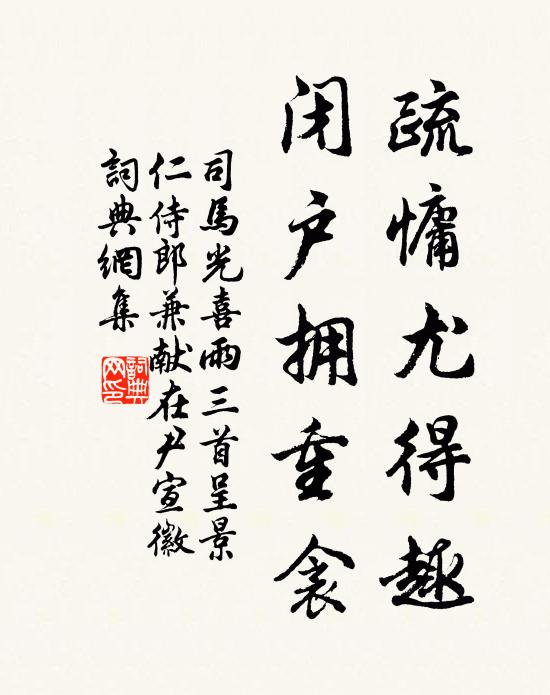 疏慵尤得趣
闭户拥重衾
司馬光喜雨三首呈景
仁侍郎兼献在尹宣徽
詞典網集
詞典网印